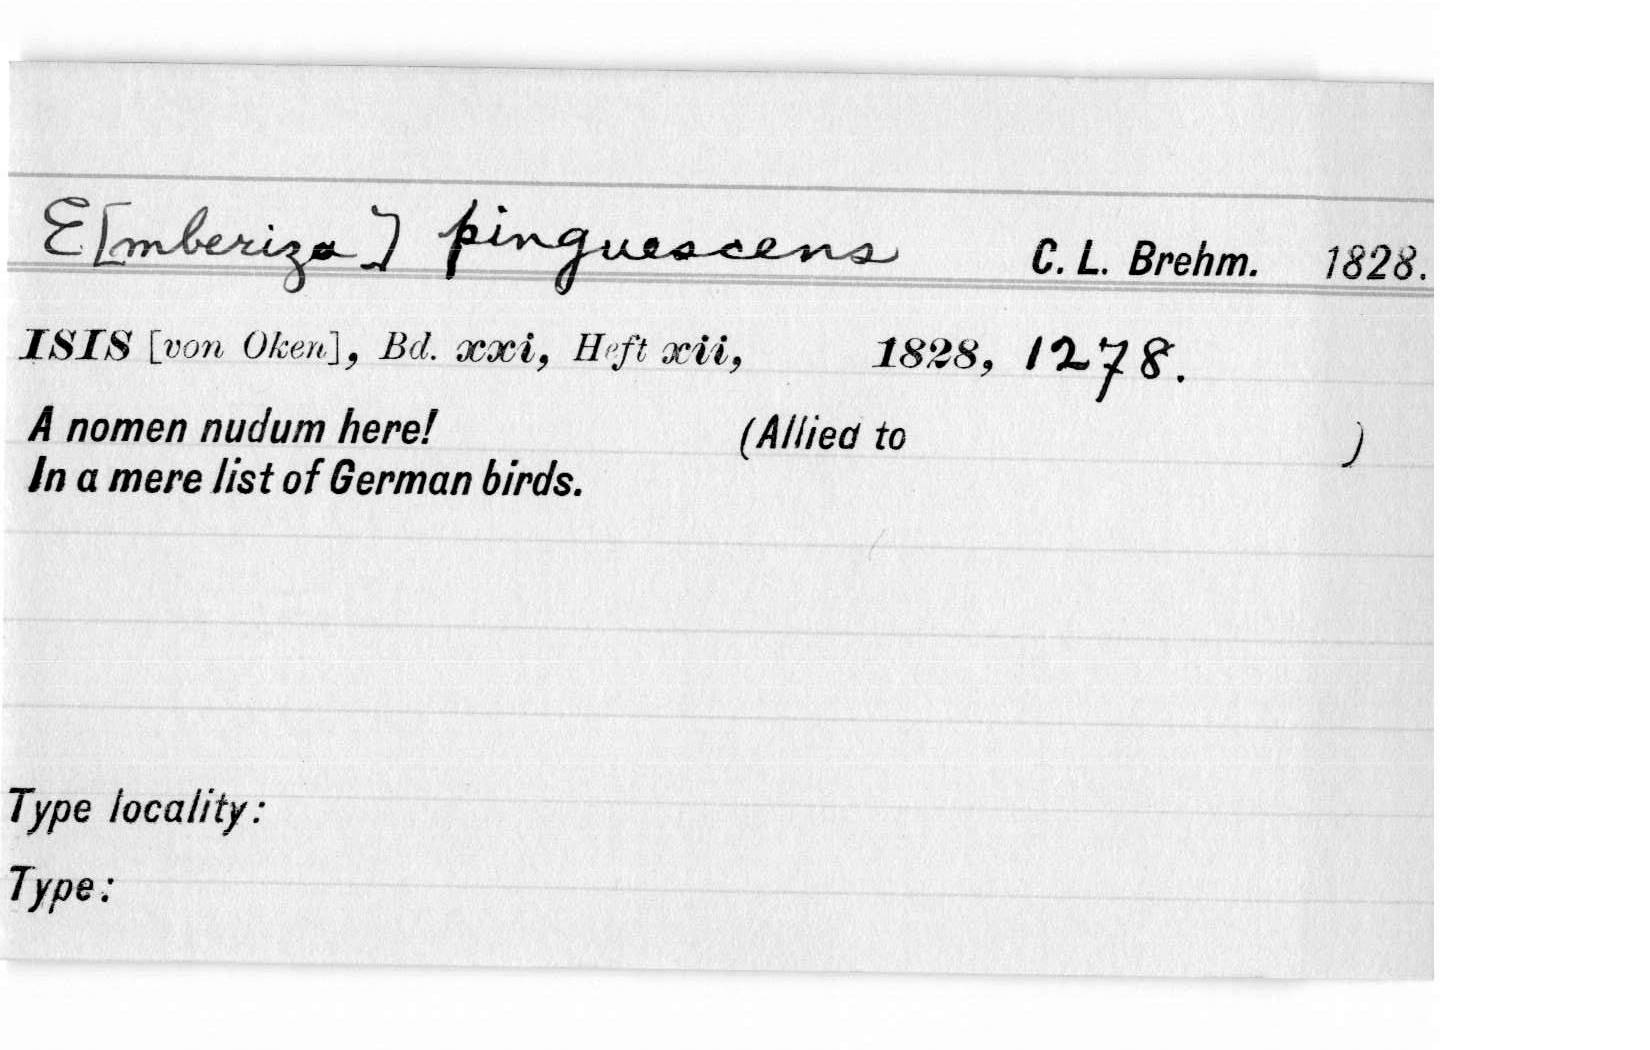 E[mberiza] pinguescens C. L. Brehm. 1828.
ISIS [von Oken], Bd. xxi, Heft xii, 1828, 1278.
A nomen nudum here! (Allied to )
In a mere list of German birds.
Type locality:
Type: